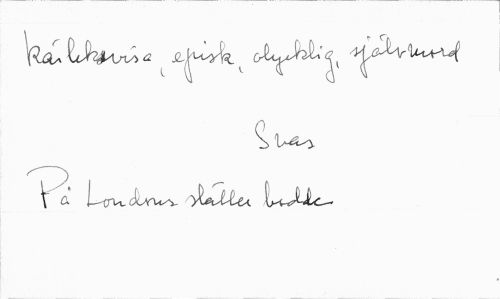 Kärleksvisa, episk, olycklig, självmord
Svas
På Londons slätter bodde